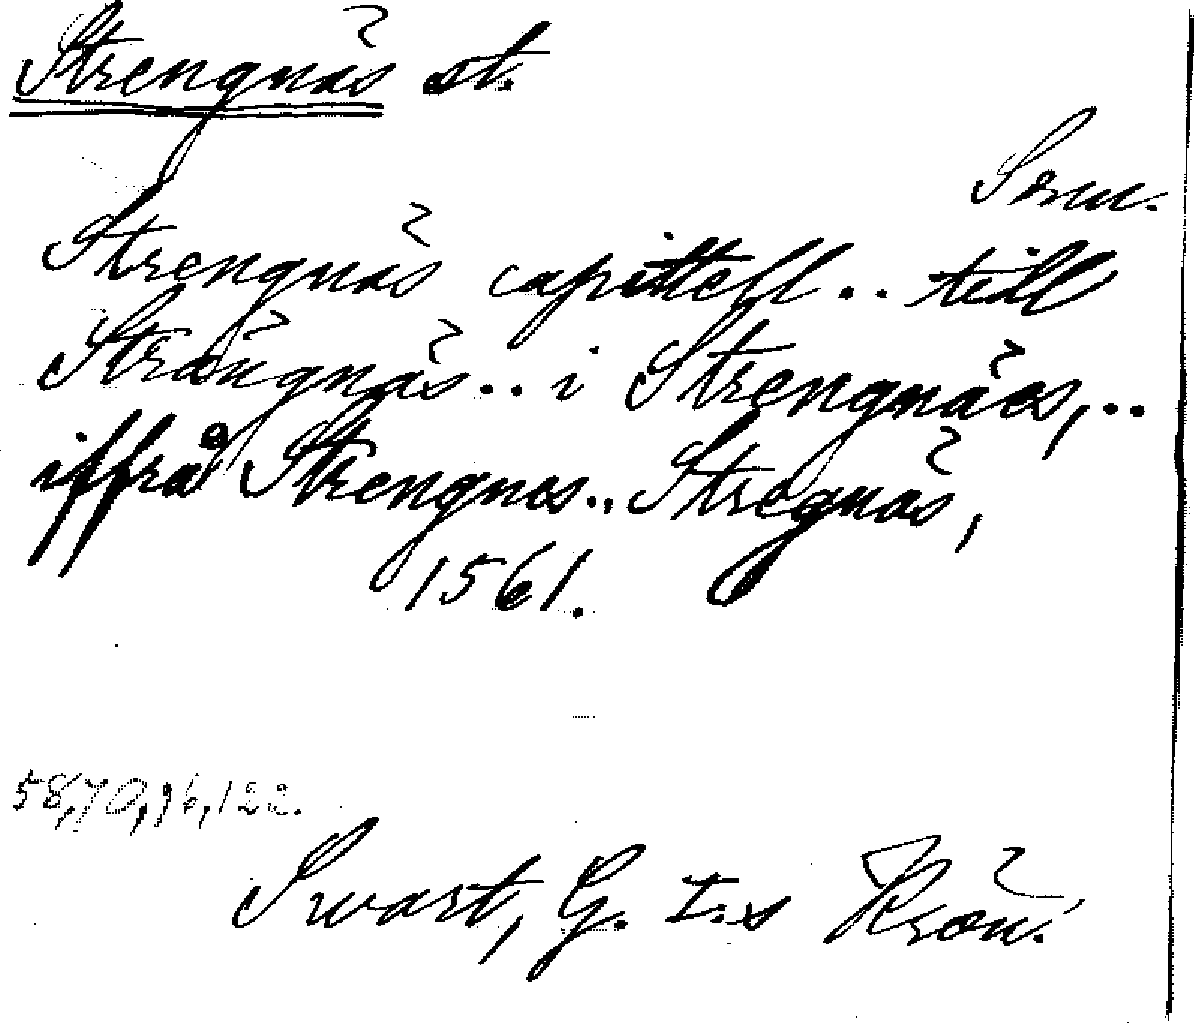 Strengnäs st.
Srm.
Strengnäs capittell .. till
Strängnäs .. i Strengnäes, ..
iffrå Strengnes .. Stregnäs,
1561.
58, 70, 96, 122.
Swart, G. I:s Krön.